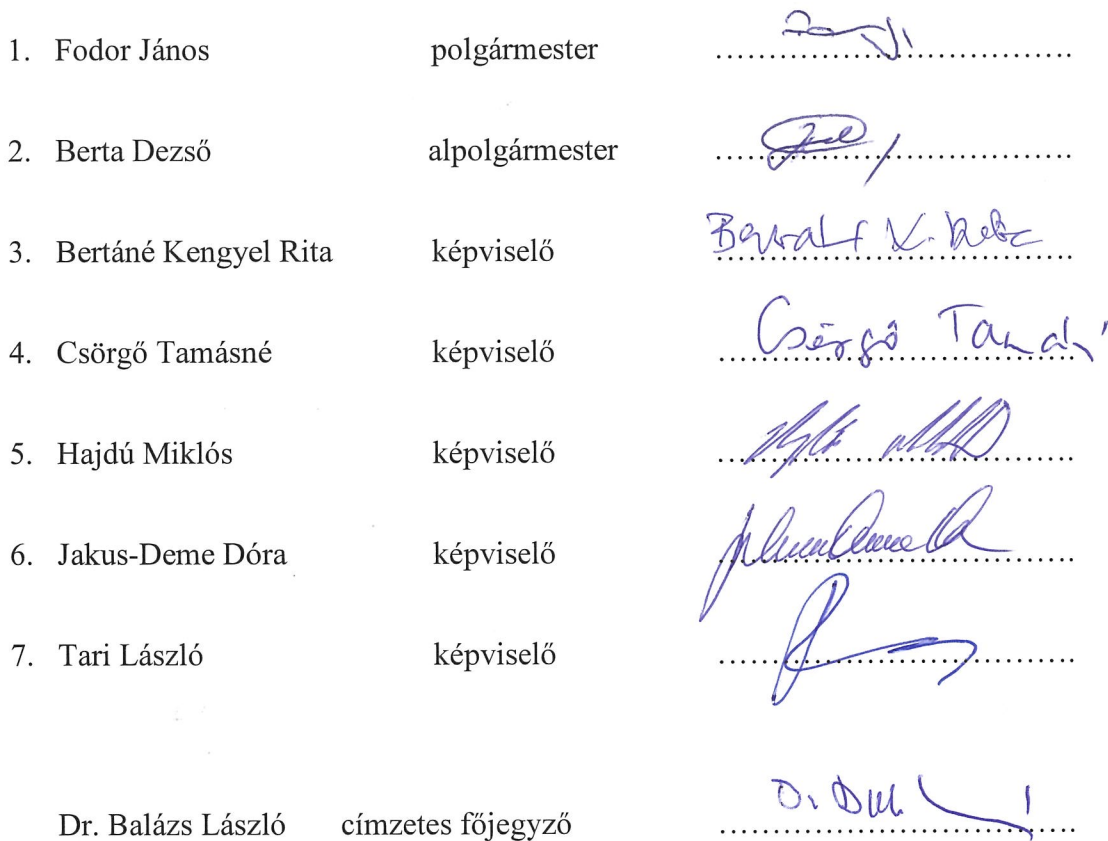 1. Fodor János polgármester ........................................
2. Berta Dezső alpolgármester ........................................
3. Bertáné Kengyel Rita képviselő ........................................
4. Csörgő Tamásné képviselő Csörgő ........................................
5. Hajdú Miklós képviselő ........................................
6. Jakus-Deme Dóra képviselő ........................................
7. Tari László képviselő ........................................
Dr. Balázs László címzetes főjegyző ........................................